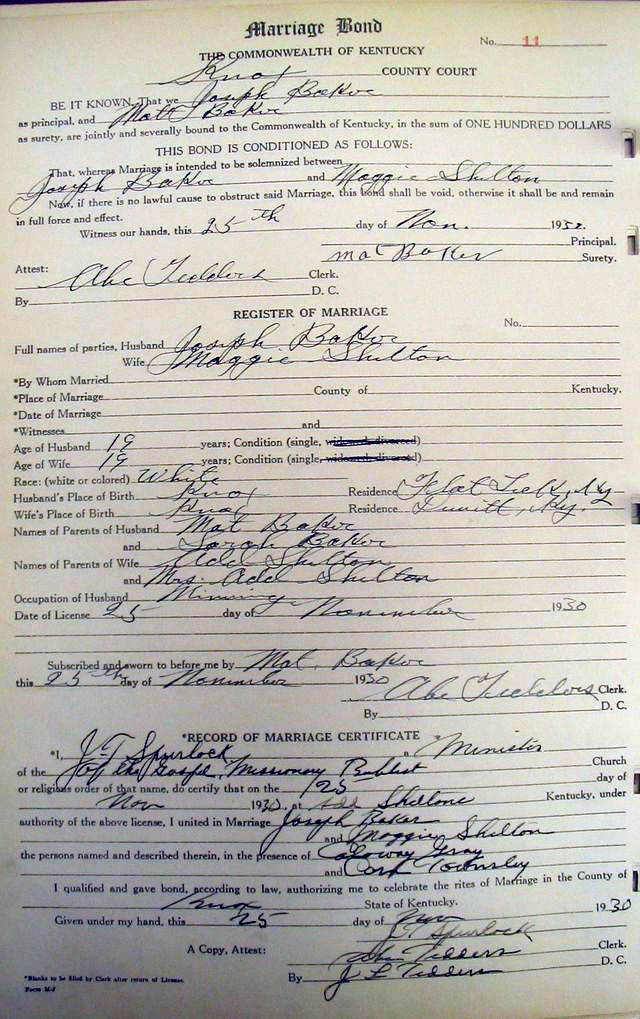 Marriage Bond
No. 11
THE COMMONWEALTH OF KENTUCKY
Knox COUNTY COURT
BE IT KNOWN, That we Joseph Baker
as principal, and Mat Baker
as surety, are jointly and severally bound to the Commonwealth of Kentucky, in the sum of ONE HUNDRED DOLLARS
THIS BOND IS CONDITIONED AS FOLLOWS:
That, whereas Marriage is intended to be solemnized between
Joseph Baker and Maggie Shelton
Now, if there is no lawful cause to obstruct said Marriage, this bond shall be void, otherwise it shall be and remain
in full force and effect.
Witness our hands, this 25th day of Nov. 1930.
Principal.
Mat Baker Surety.
Attest: Abe Tedders Clerk.
By D. C.
REGISTER OF MARRIAGE
No.
Full names of parties, Husband Joseph Baker
Wife Maggie Shelton
*By Whom Married
*Place of Marriage County of Kentucky.
*Date of Marriage
*Witnesses and
Age of Husband 19 years; Condition (single, widowed, divorced)
Age of Wife 19 years; Condition (single, widowed, divorced)
Race: (white or colored) White
Husband's Place of Birth Knox Residence Flat Lick, Ky
Wife's Place of Birth Knox Residence Dewitt, Ky.
Names of Parents of Husband Mat Baker
and Sarah Baker
Names of Parents of Wife Add Shelton
and Mrs. Add Shelton
Occupation of Husband Mining
Date of License 25 day of November 1930
Subscribed and sworn to before me by Mat. Baker
this 25th day of November 1930
Abe Tedders Clerk.
By D. C.
*RECORD OF MARRIAGE CERTIFICATE
*I, J T Spurlock a Minister
of the of the Gospel, Missionary Babtist Church
or religious order of that name, do certify that on the 25 day of
Nov 1930, at Add Sheltons Kentucky, under
authority of the above license, I united in Marriage Joseph Baker
and Maggie Shelton
the persons named and described therein, in the presence of Caloway Gray
and Townsley
I qualified and gave bond, according to law, authorizing me to celebrate the rites of Marriage in the County of
Knox State of Kentucky.
Given under my hand, this 25 day of Nov 1930
J T Spurlock
A Copy, Attest: Abe Tedders Clerk.
By J L Tedders D. C.
*Blanks to be filled by Clerk after return of License.
Form M-F